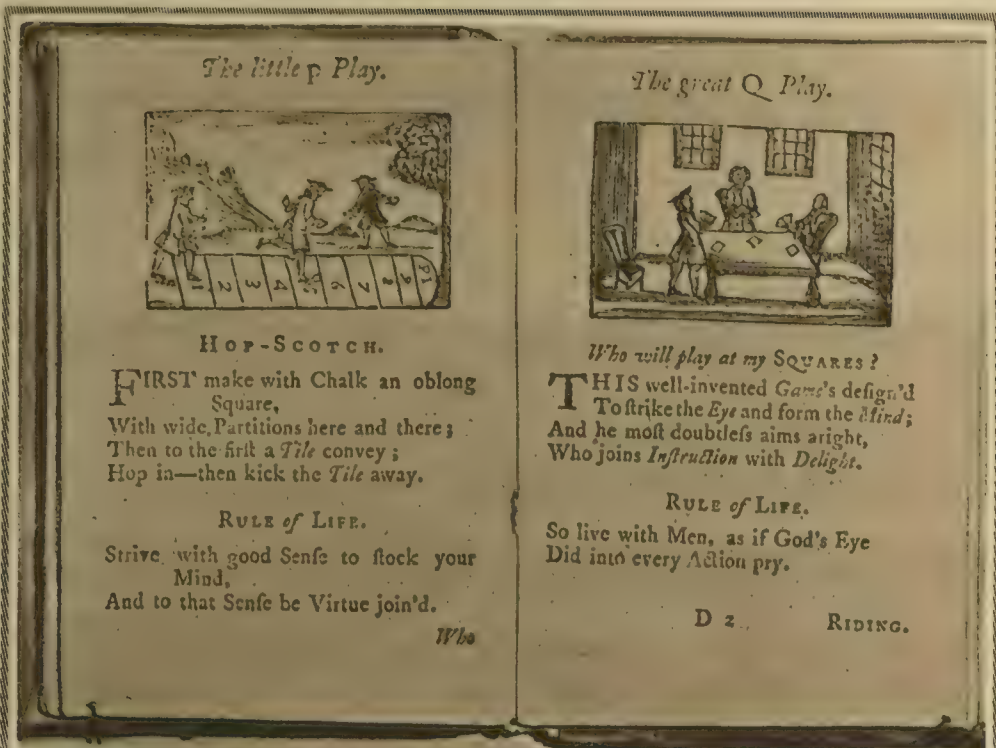 The little p Play.
1 2 3 4 5 6 7 8 9 10
HOP-SCOTCH.
FIRST make with Chalk an oblong
Square,
With wide Partitions here and there;
Then to the first a Tile convey;
Hop in—then kick the Tile away.
RULE of LIFE.
Strive with good Senſe to ſtock your
Mind,
And to that Senſe be Virtue join'd.
Who
The great Q Play.
Who will play at my SQUARES?
THIS well-invented Game's deſign'd
To ſtrike the Eye and form the Mind;
And he moſt doubtleſs aims aright,
Who joins Inſtruction with Delight.
RULE of LIFE.
So live with Men, as if God's Eye
Did into every Action pry.
D 2 RIDING.